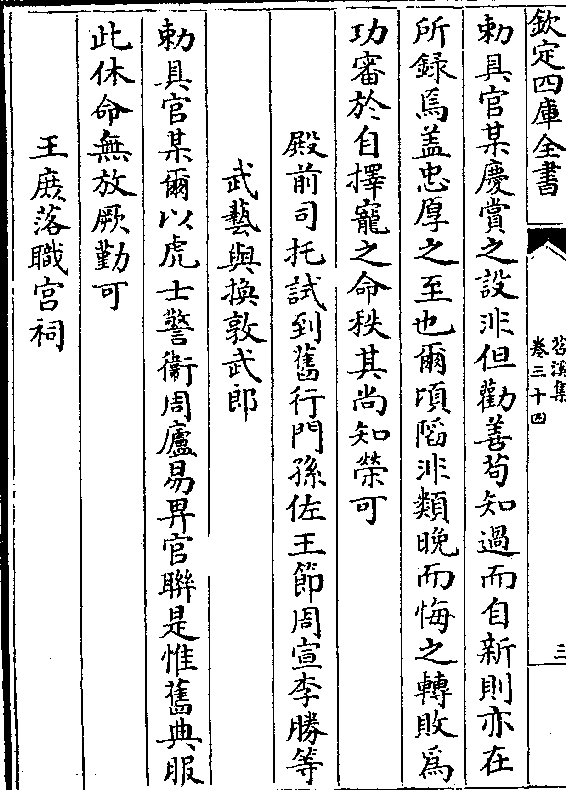 欽定四庫全書
苕溪集
卷三十四
三
勅具官某慶賞之設非但勸善苟知過而自新則亦在
所録焉盖忠厚之至也爾頃陷非類晚而悔之轉敗爲
功審於自擇寵之命秩其尚知榮可
殿前司托試到舊行門孫佐王節周宣李勝等
武藝與換敦武郎
勅具官某爾以虎士警衛周廬易畀官聯是惟舊典服
此休命無放厥勤可
王庶落職宫祠